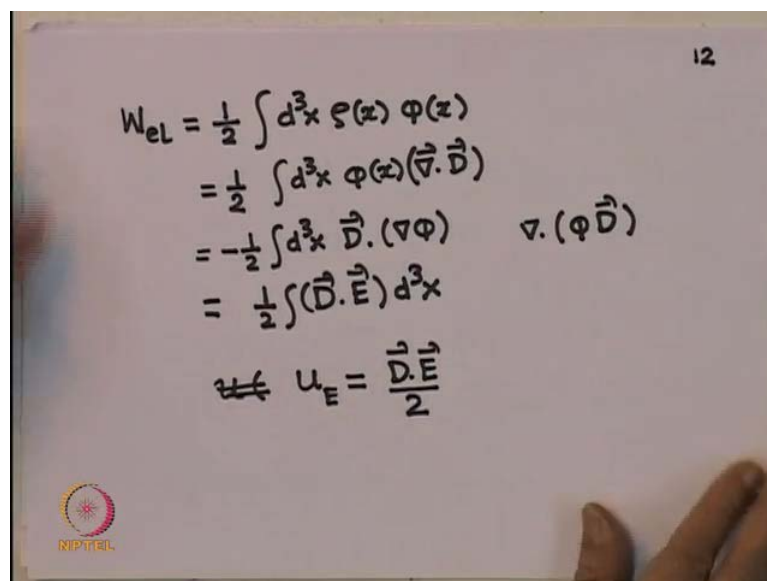 12
W_el = 1/2 ∫ d³x ρ(x) φ(x)
= 1/2 ∫ d³x φ(x) (∇⃗.D⃗)
= -1/2 ∫ d³x D⃗.(∇φ) ∇.(φD⃗)
= 1/2 ∫ (D⃗.E⃗) d³x
u_E = D⃗.E⃗/2
NPTEL